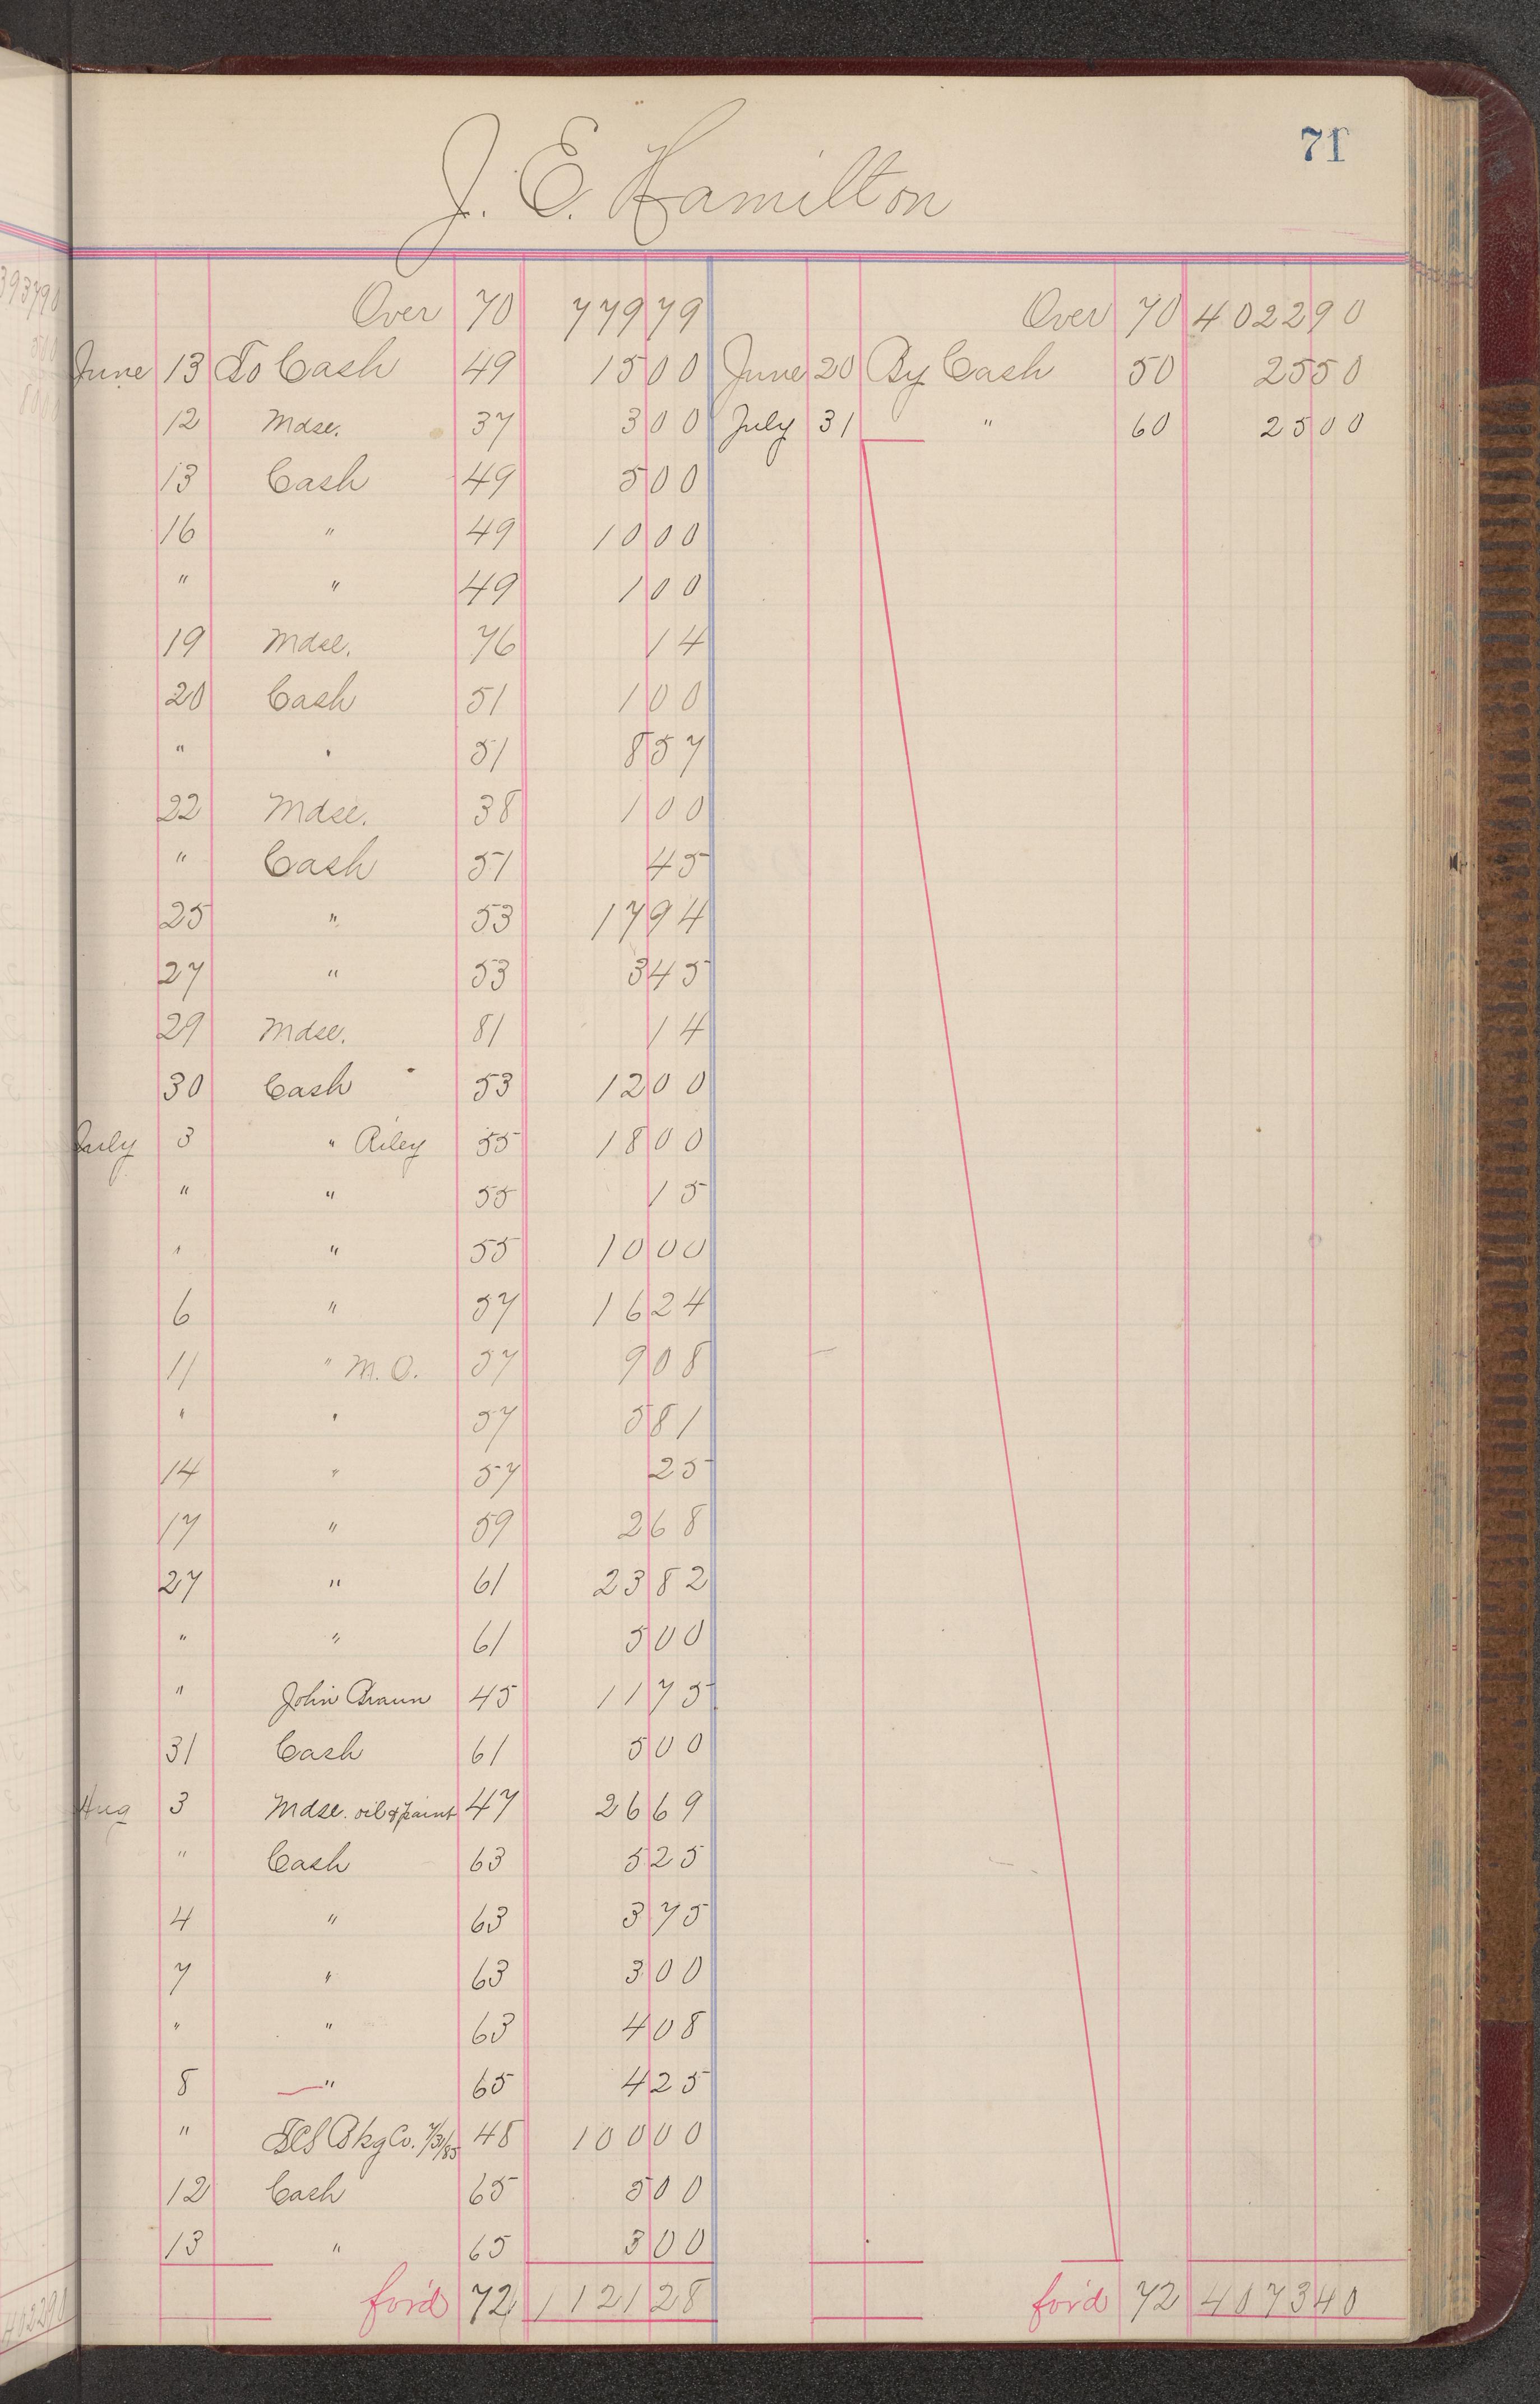 71
J. E. Hamilton
Over 70 779 79 Over 70 4022 90
June 13 To Cash 49 15 00 June 20 By Cash 50 25 50
12 Mdse. 37 3 00 July 31 " 60 25 00
13 Cash 49 5 00
16 " 49 10 00
" " 49 1 00
19 Mdse. 76 14
20 Cash 51 1 00
" " 51 8 57
22 Mdse. 38 1 00
" Cash 51 45
25 " 53 17 94
27 " 53 3 45
29 Mdse. 81 14
30 Cash 53 12 00
July 3 " Riley 55 18 00
" " 55 15
" " 55 10 00
6 " 57 16 24
11 " M.O. 57 9 08
" " 57 5 81
14 " 57 25
17 " 59 2 68
27 " 61 23 82
" " 61 5 00
" John Braun 45 11 75
31 Cash 61 5 00
Aug 3 Mdse. oil & paint 47 26 69
" Cash 63 5 25
4 " 63 3 75
7 " 63 3 00
" " 63 4 08
8 " 65 4 25
" Bkg Co. 7/31/85 48 100 00
12 Cash 65 5 00
13 " 65 3 00
for'd 72 1121 28 for'd 72 4073 40